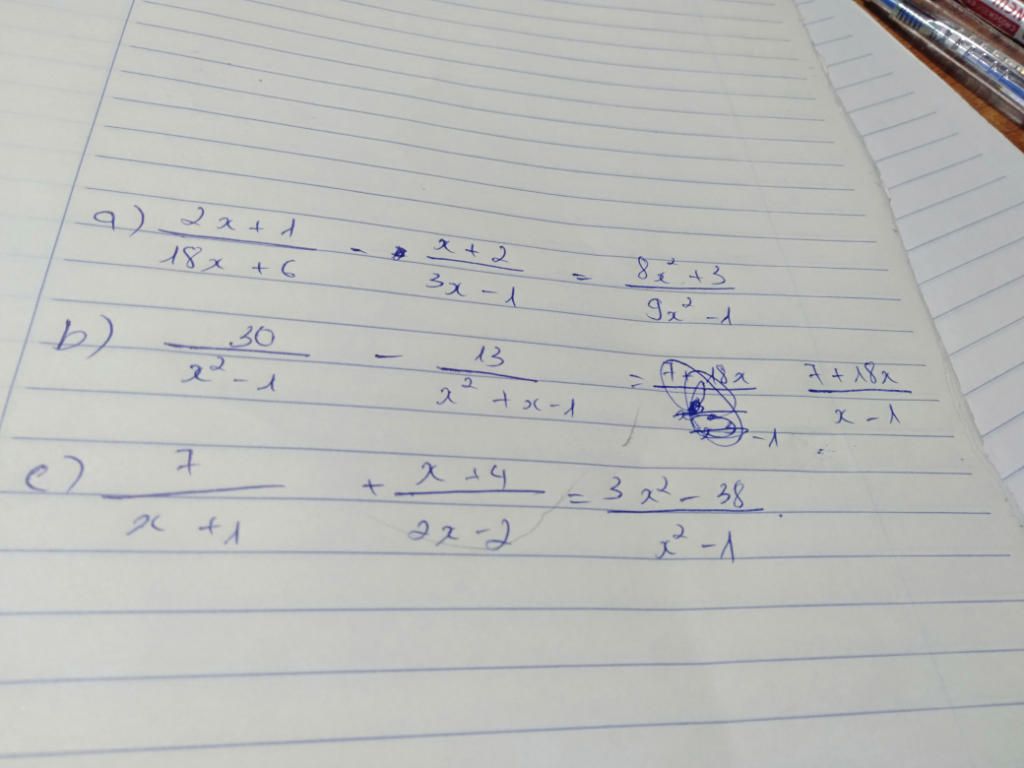 a) (2x + 1)/(18x + 6) - (x + 2)/(3x - 1) = (8x² + 3)/(9x² - 1)
b) 30/(x² - 1) - 13/(x² + x - 1) = (7 + 18x)/(x - 1)
c) 7/(x + 1) + (x + 4)/(2x - 2) = (3x² - 38)/(x² - 1)